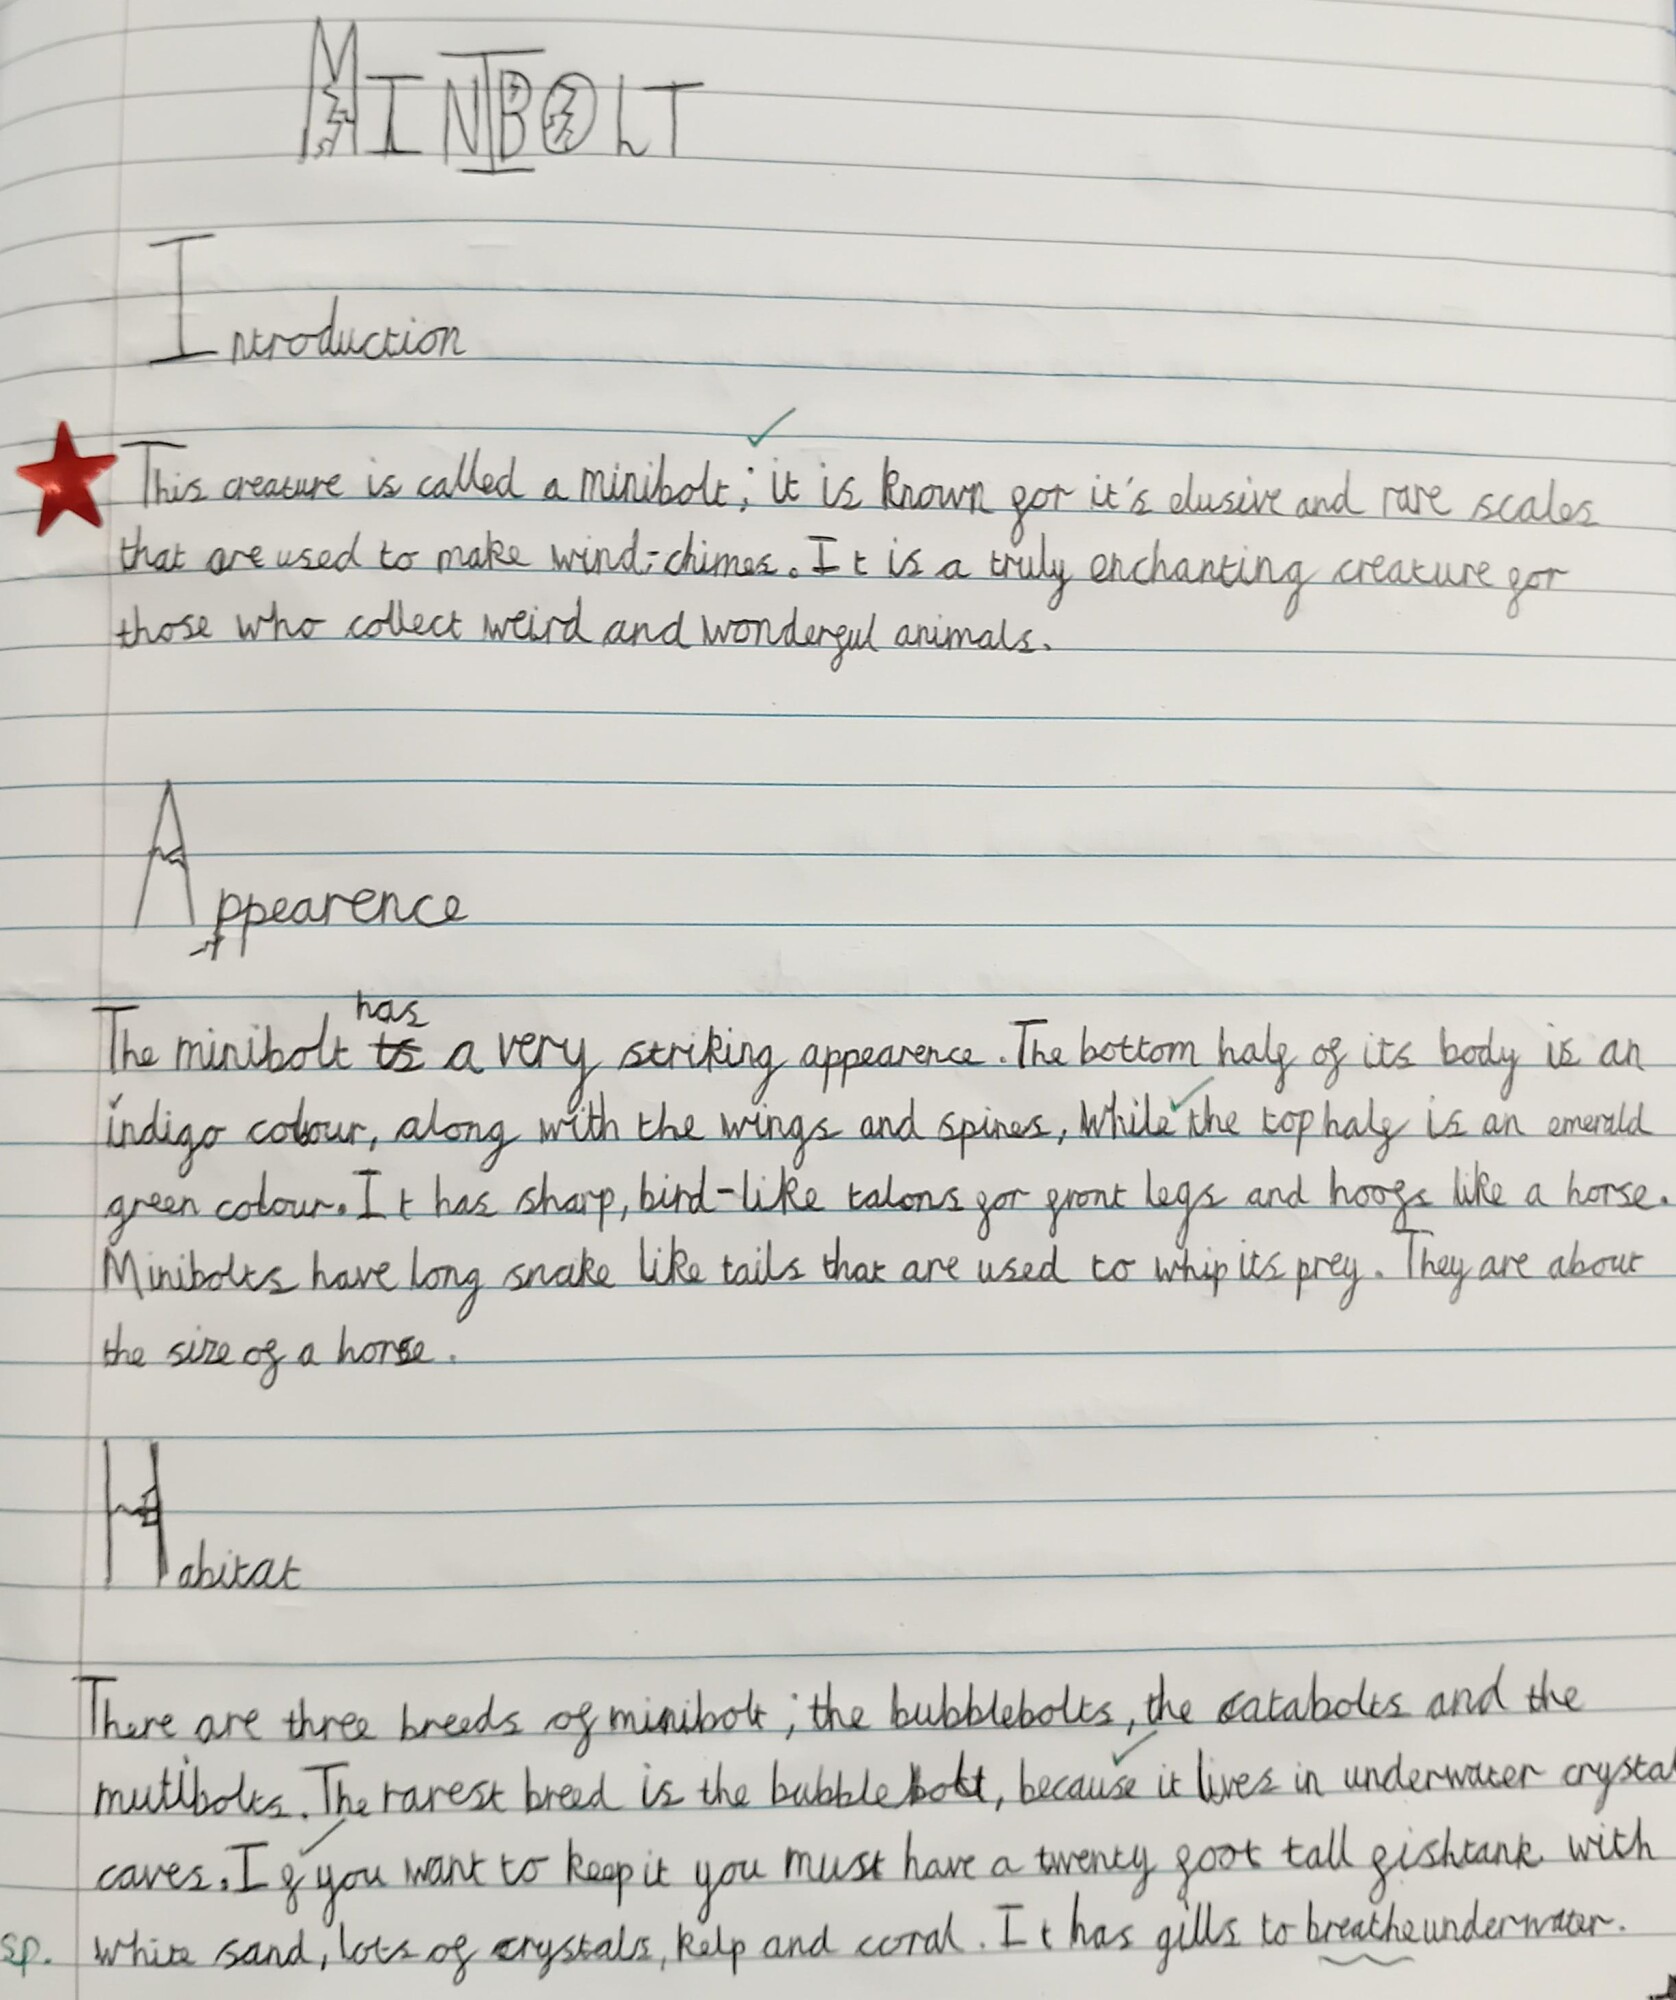 MINIBOLT
Introduction
This creature is called a minibolt; it is known for it's elusive and rare scales
that are used to make wind-chimes. It is a truly enchanting creature for
those who collect weird and wonderful animals.
Appearence
has
The minibolt is a very striking appearence. The bottom half of its body is an
indigo colour, along with the wings and spines, while the top half is an emerald
green colour. It has sharp, bird-like talons for front legs and hoofs like a horse.
Minibolts have long snake like tails that are used to whip its prey. They are about
the size of a horse.
Habitat
There are three breeds of minibolt; the bubblebolts, the catabolts and the
mutibolts. The rarest breed is the bubble bolt, because it lives in underwater crystal
caves. If you want to keep it you must have a twenty foot tall fishtank with
sp. white sand, lots of crystals, kelp and coral. It has gills to breathe underwater.